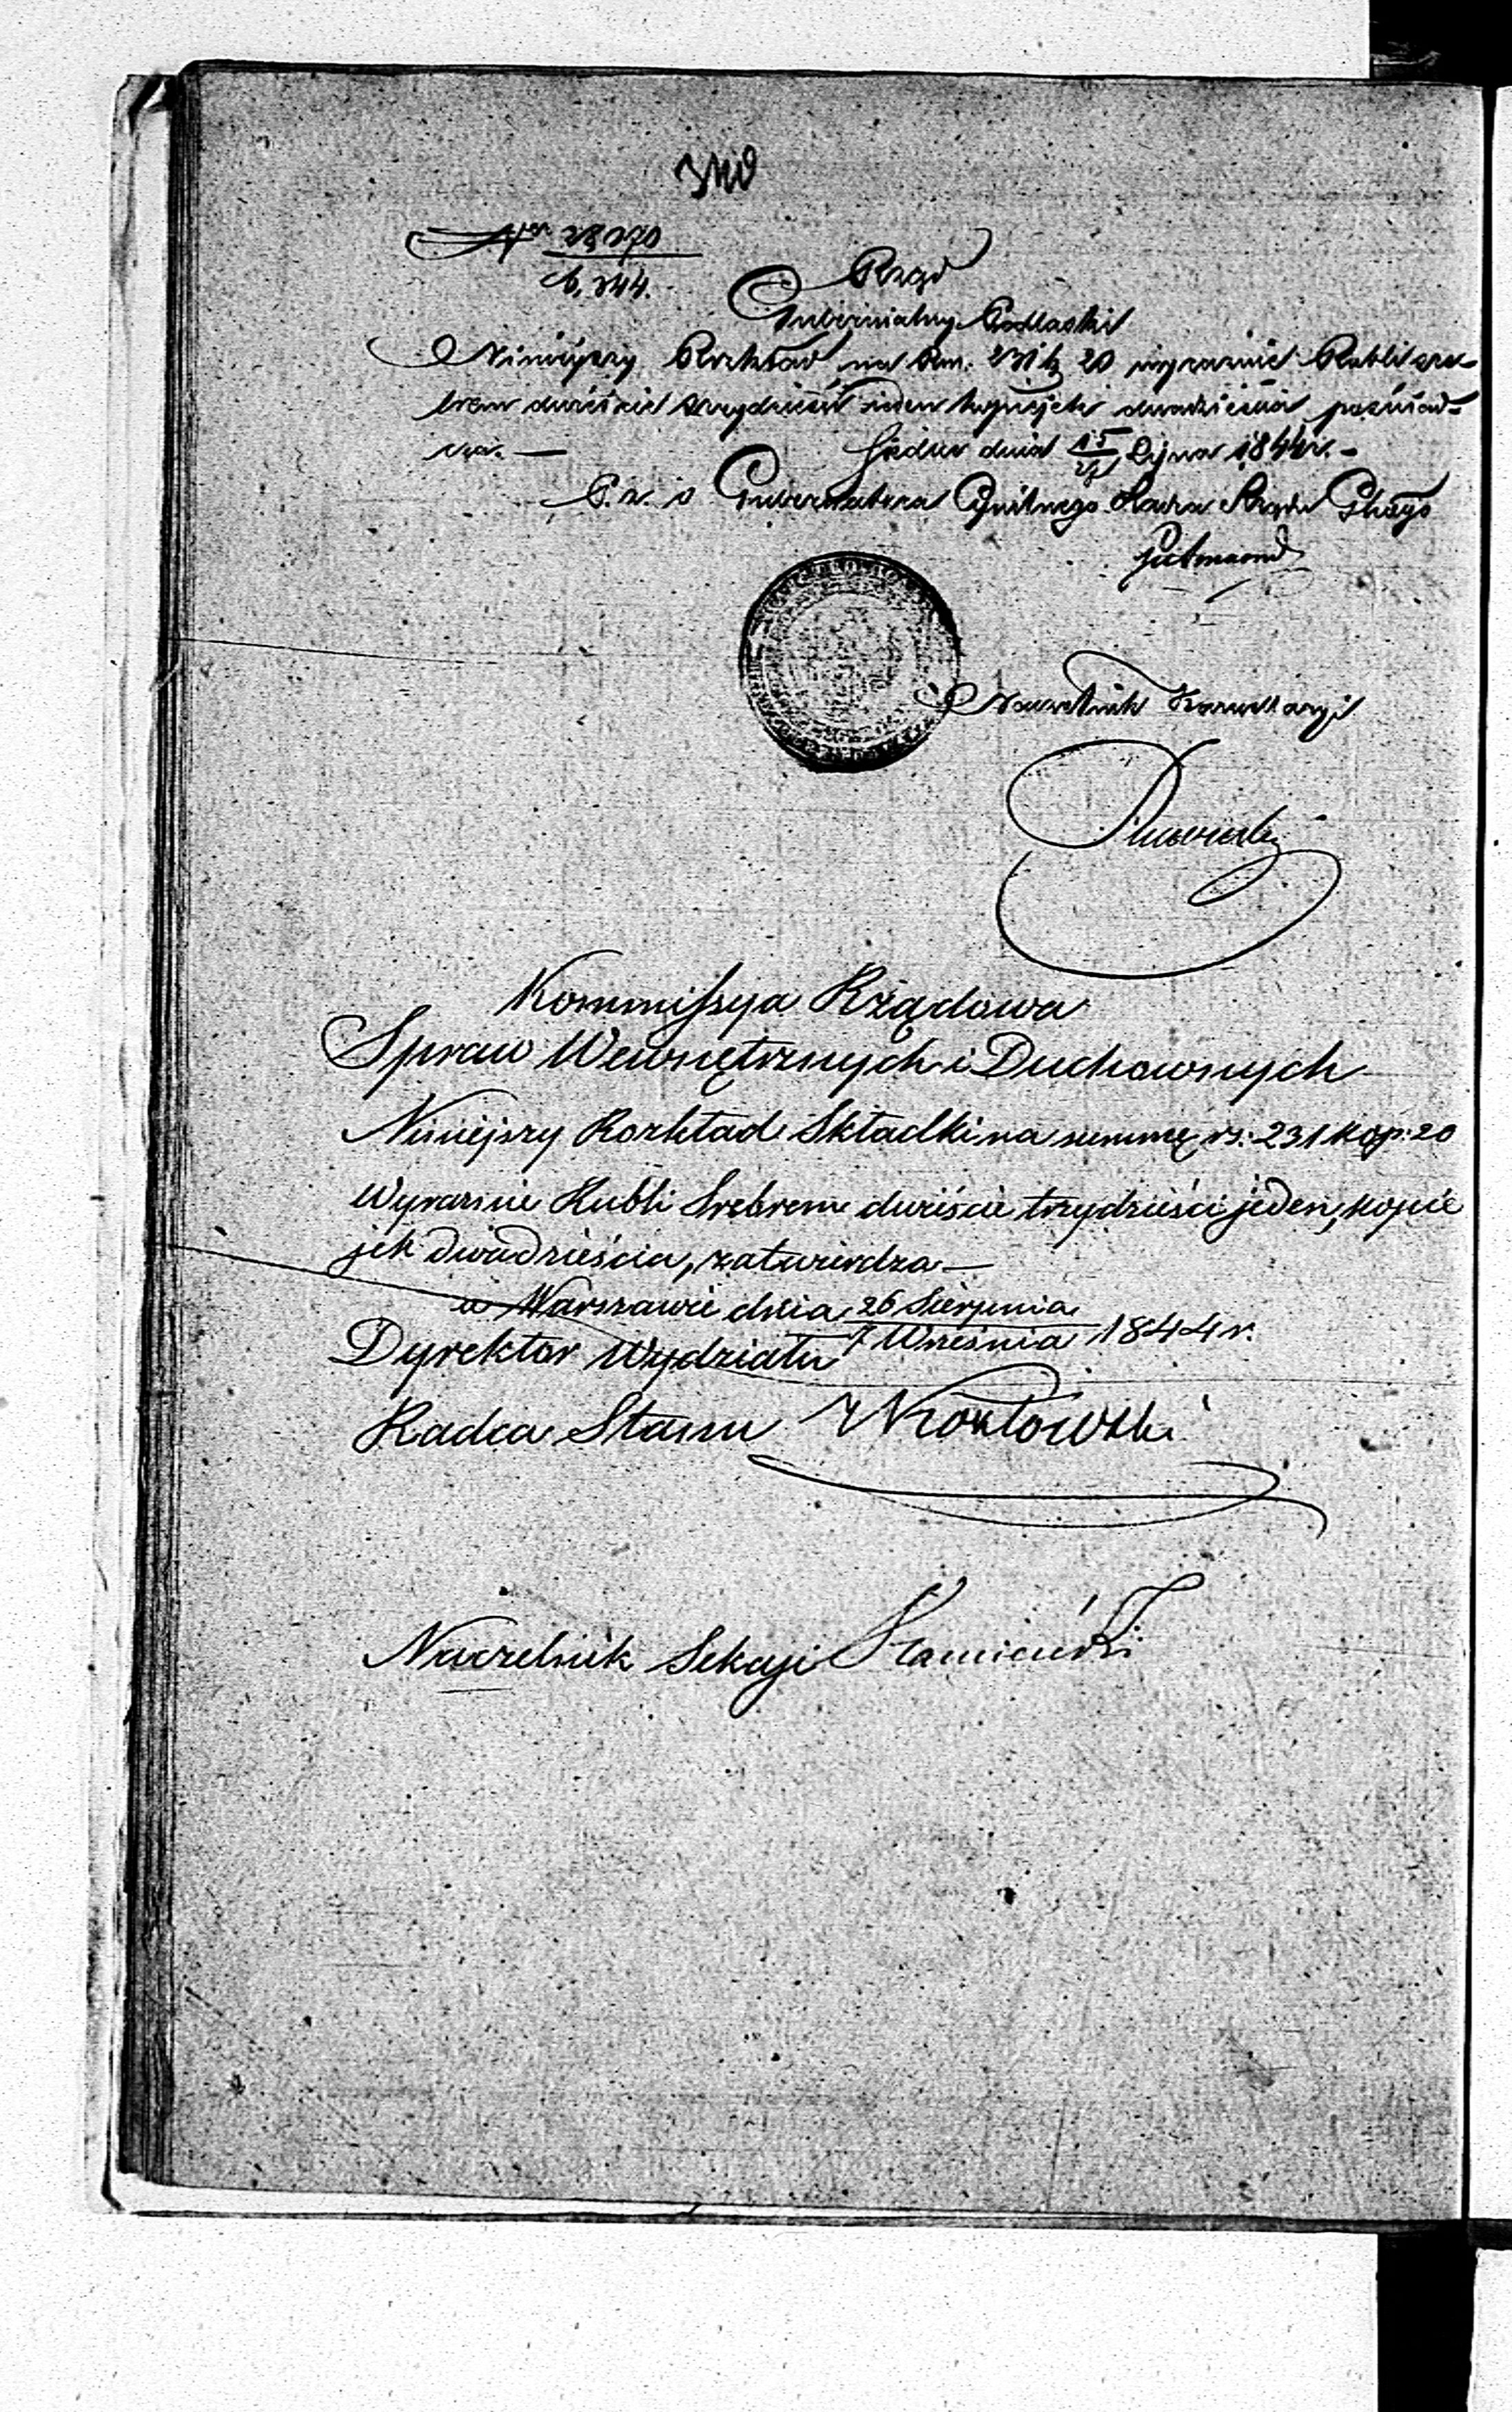 28070
Rząd
Gubernialny Podlaski
Niniejszy Rozkład na Rsr. 231 k 20 wyraźnie Rubli sre-
brem dwieście trzydzieści jeden kopiejek dwadzieścia poświad-
cza. —
Siedlce dnia 15/27 Lipca 1844 r. -
Gubernatora Cywilnego Radca Rządu
Naczelnik Kancellaryi
Kommissya Rządowa
Spraw Wewnętrznych i Duchownych
Niniejszy Rozkład Składki na summę rs: 231 kop: 20
Wyraźnie Rubli Srebrem dwieście trzydzieści jeden, kopie
jek dwadzieścia, zatwierdza —
w Warszawie dnia 26 Sierpnia / 7 Września 1844 r.
Dyrektor Wydziału
Radca Stanu Kozłowski
Naczelnik Sekcyi